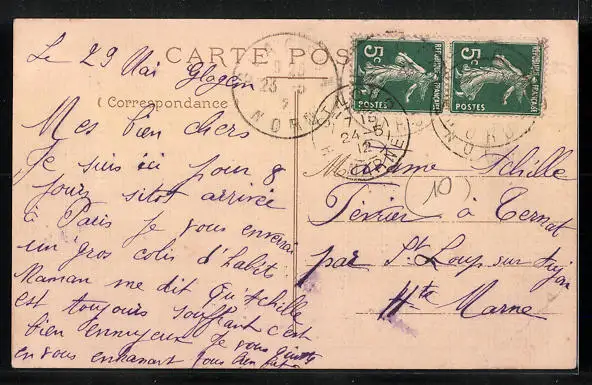 CARTE POS
(Correspondance
Le 29 Mai
Mes bien chers
Je suis ici pour 8
jours sitot arrivée
à Paris je vous enverrai
un gros colis d'habits.
Maman me dit qu'Achille
est toujours souffrant c'est
bien ennuyeux Je vous quitte
en vous embrassant tous bien fort
5c 5c
REPUBLIQUE FRANÇAISE
POSTES POSTES
NORD
24-5
12
Madame Achille
Février à Ternat
par St Loup sur Aujon
Hte Marne
(10)